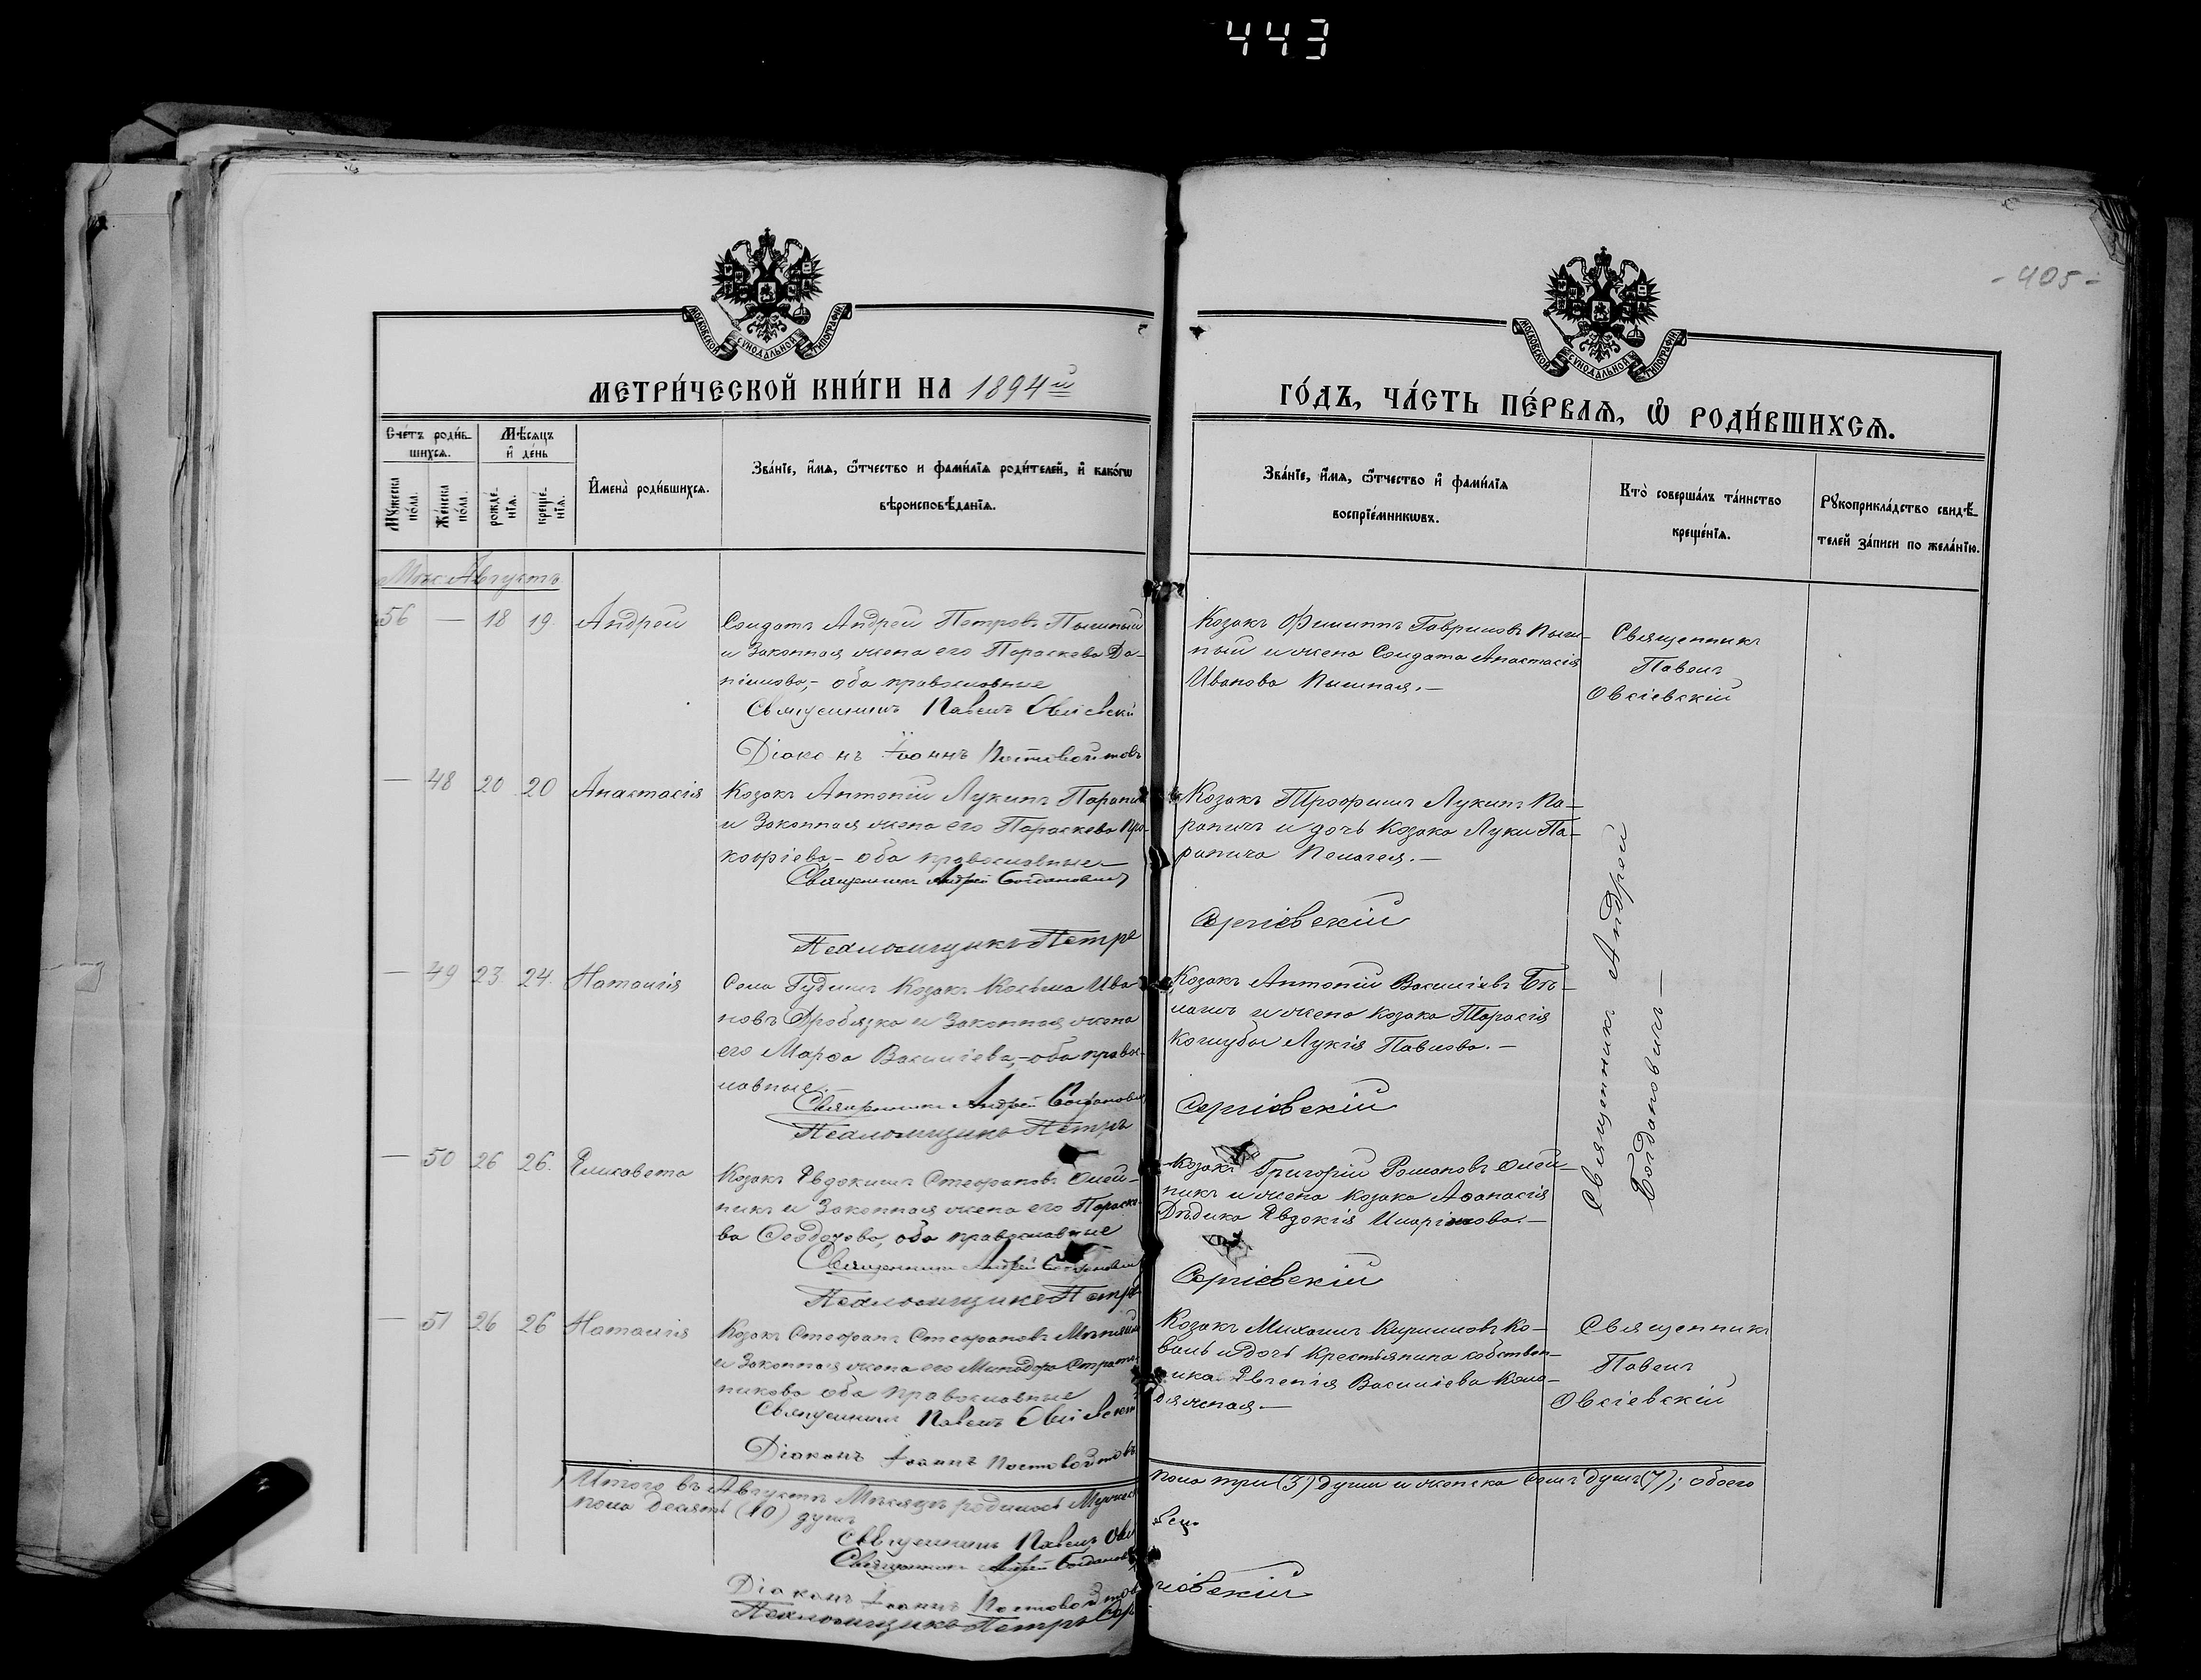 443
- 405 -
МОСКОВСКОЙ СѴНОДАЛЬНОЙ ТИПОГРАФІИ
МОСКОВСКОЙ СѴНОДАЛЬНОЙ ТИПОГРАФІИ
МЕТРИ́ЧЕСКОЙ КНИ́ГИ НА 1894й
ГО́ДЪ, ЧА́СТЬ ПЕ́РВАЯ, Ѡ РОДИ́ВШИХСЯ.
Сче́тъ роди́в-
шихся.
Мѣ́сяцъ
и день
Му́жеска по́ла.
Же́нска по́ла.
рожде́-
нія.
креще́-
нія.
Имена̀ роди́вшихся.
Зва́ніе, и́мя, ѻ́тчество и фами́лія роди́телей, и како́гѡ
вѣроисповѣ́данія.
Зва́ніе, и́мя, ѻ́тчество и фами́лія
воспріе́мникѡвъ.
Кто̀ соверша́лъ та́инство
креще́нія.
Рукоприкла́дство свидѣ́-
телей за́писи по жела́нію.
Мѣс. Августъ
56 — 18 19 Андрей
Солдатъ Андрей Петровъ Пышный
и законная жена его Параскева Да-
ніилова, - оба православные
Священникъ Павелъ Овсіевскій
Діаконъ Іоаннъ Постовойтовъ
Козакъ Филиппъ Гавриловъ Пыш-
ный и жена Солдата Анастасія
Иванова Пышная. —
Священникъ
Павелъ
Овсіевскій
— 48 20 20 Анастасія
Козакъ Антоній Лукинъ Парапич
и законная жена его Параскева Про-
кофіева, - оба православные
Священникъ Андрей Богдановичъ
Псаломщикъ Петръ
Козакъ Трофимъ Лукинъ Па-
рапичъ и дочь козака Луки Па-
рапича Пелагея. —
Сергіевскій
— 49 23 24 Наталія
Села Козакъ Косьма Ива-
новъ Дробязко и законная жена
его Марфа Василіева, - оба правос-
лавные. —
Священникъ Андрей Богданович
Псаломщикъ Петръ
Козакъ Антоній Василіевъ Бѣ-
и жена козака Тарасія
Кошубы Лукія Павлова. —
Сергіевскій
Священникъ Андрей
Богдановичъ —
— 50 26 26. Елисавета
Козакъ Евдокимъ Стефановъ Олей-
никъ и законная жена его Параске-
ва Феодорова, оба православные
Священникъ Андрей Богданович
Псаломщикъ Петръ
Козакъ Григорій Романовъ Олей-
никъ и жена козака Афанасія
Дѣдика Евдокія Иларіонова. —
Сергіевскій
— 51 26 26 Наталія
Козакъ Стефанъ Стефановъ
и законная жена его Минодора Страто-
никова оба православные
Священникъ Павелъ Овсіевскій
Діаконъ Іоаннъ Постовойтовъ
Козакъ Михаилъ Кирилловъ Ко-
валь и дочь крестьянина собствен-
ника Евгенія Василіева Коло-
дяжная. —
Священникъ
Павелъ
Овсіевскій
Итого въ Августѣ Мѣсяцѣ родилось Мужес
пола три (3) души и женска семь душъ (7); обоего
пола десять (10) душъ
Священникъ Павелъ Овсі
Священникъ Андрей Богданов
Діаконъ Іоаннъ Постовойтов
Псаломщикъ Петръ Сер
гіевскій